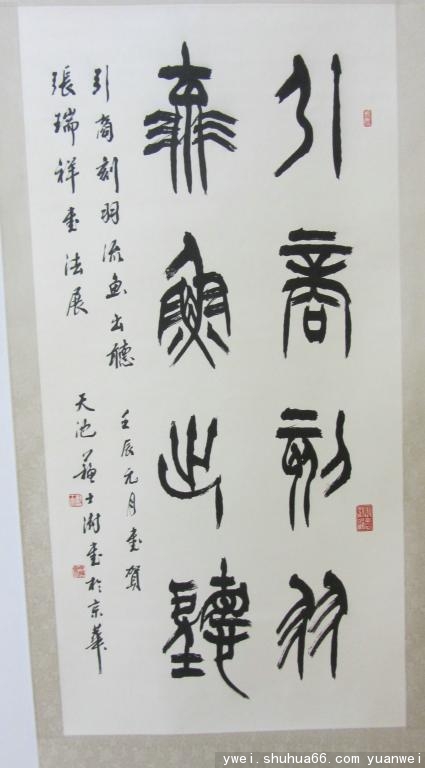 引商刻羽
流魚出聽
引商刻羽流魚出聽
壬辰元月書賀
張瑞祥書法展
天池蘇士澍書於京華
ywei.shuhua66.com yuanwei